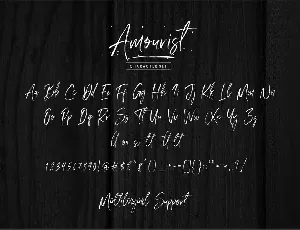 Amourist
CHARACTER SET
Aa Bb Cc Dd Ee Ff Gg Hh Ii Jj Kk Ll Mm Nn
Oo Pp Qq Rr Ss Tt Uu Vv Ww Xx Yy Zz
1234567890!@#$%
Multilingual Support